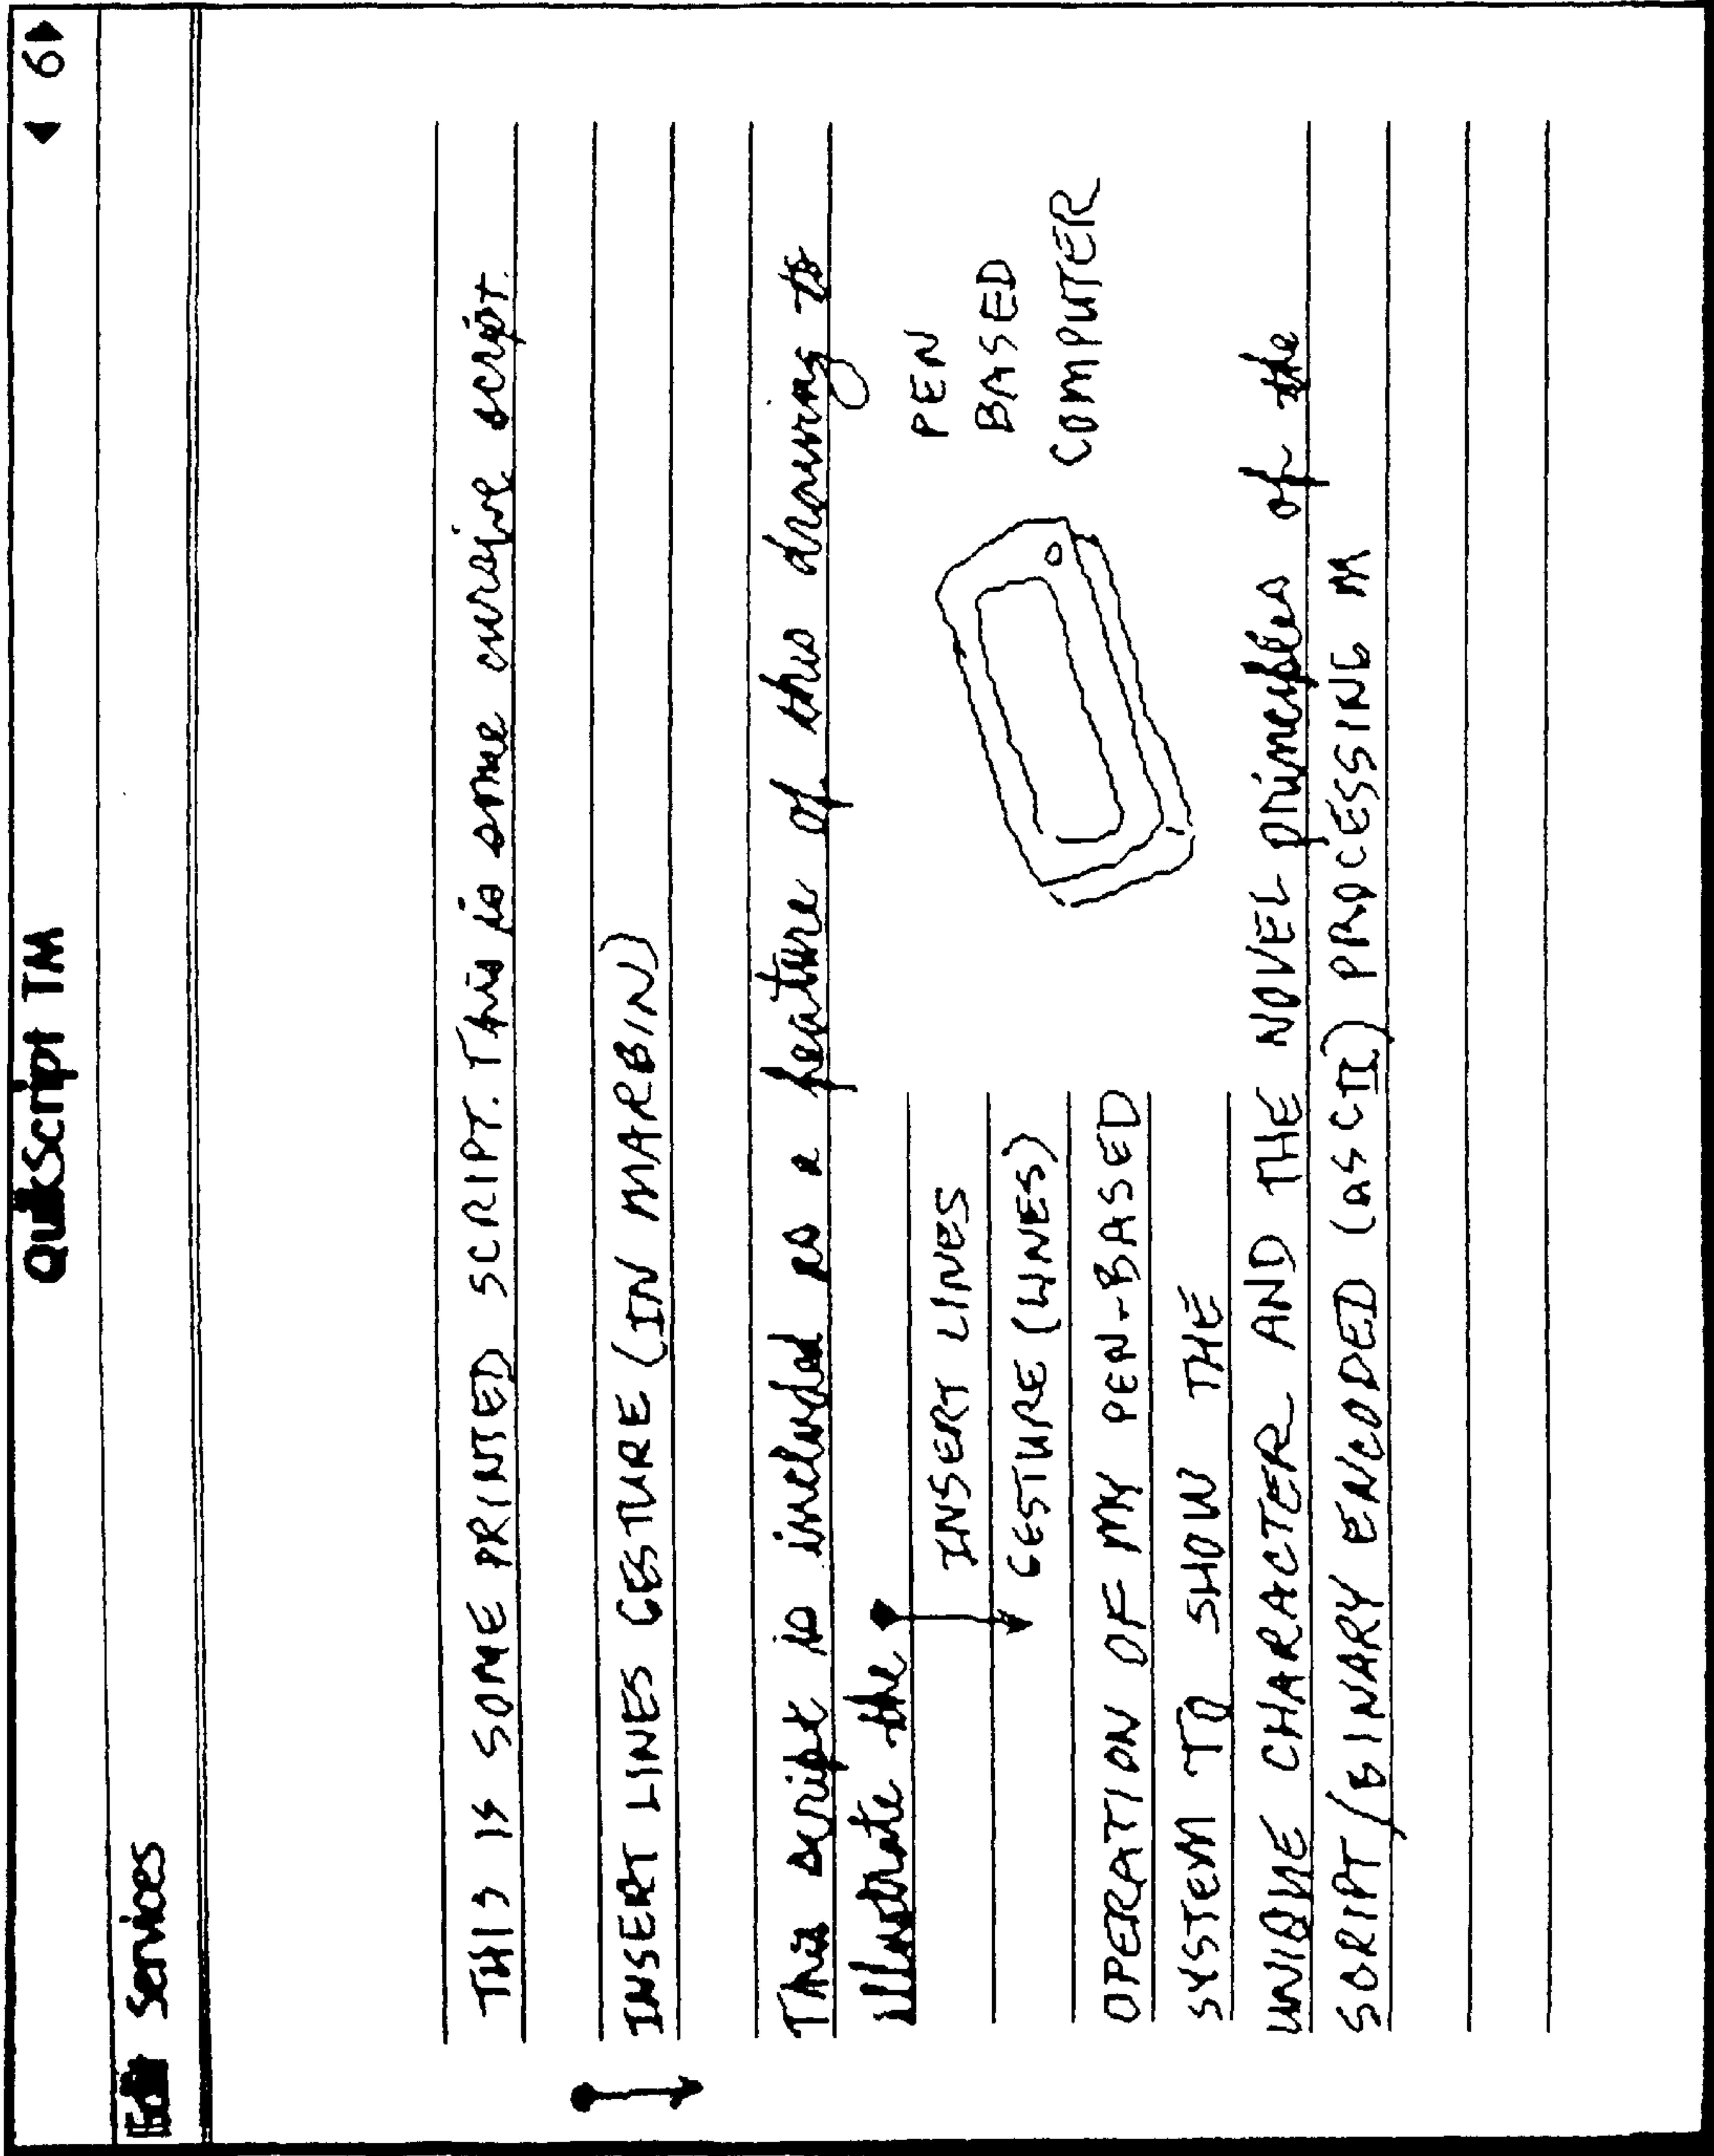 QuikScript TM
6
Edit Services
THIS IS SOME PRINTED SCRIPT. This is some cursive script.
INSERT LINES GESTURE (IN MARGIN)
This script is included as a feature of this drawing to
illustrate the
INSERT LINES
GESTURE (LINES)
PEN
BASED
COMPUTER
OPERATION OF MY PEN-BASED
SYSTEM TO SHOW THE
UNIQUE CHARACTER AND THE NOVEL principles of the
SCRIPT/BINARY ENCODED (ASCII) PROCESSING M